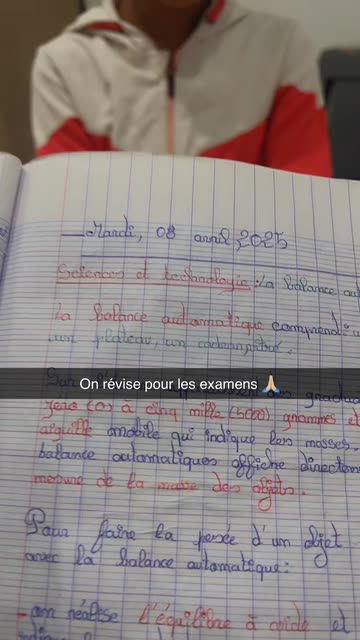 Mardi, 08 avril 2025
Sciences et technologie : la balance au
La balance automatique comprend : u
un plateau, un
On révise pour les examens 🙏🏼
gradué
zéro (0) à cinq mille (5000) grammes et
aiguille mobile qui indique les masses.
balance automatique affiche directem
mesure de la masse des objets.
Pour faire la pesée d'un objet
avec la balance automatique :
- on réalise l'équilibre à vide et